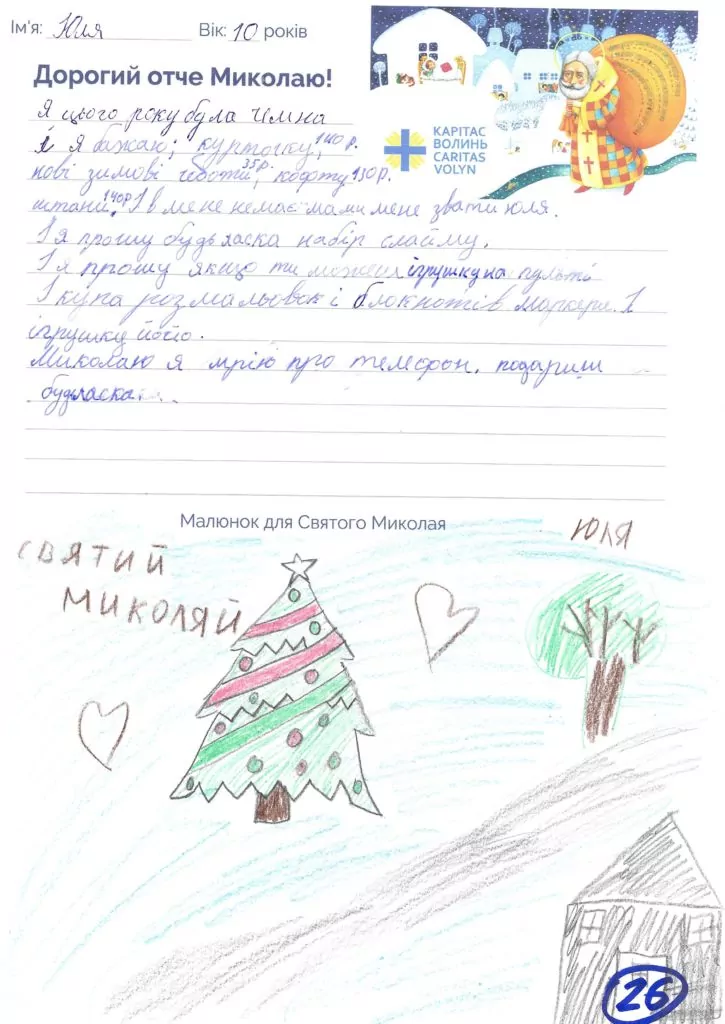 Ім'я: Юля Вік: 10 років
Дорогий отче Миколаю!
КАРІТАС
ВОЛИНЬ
CARITAS
VOLYN
Я цього року була чемна
й я бажаю; курточку, 140 р.
нові зимові чоботи, 35 р. кофту 130 р.
штани, 140 р І в мене немає мами мене звати юля.
І я прошу будьласка набір слайму.
І я прошу якщо ти можеш ігрушку на пульті
І купа розмальовок і блокнотів маркери. І
ігрушку йойо.
Миколаю я мрію про телефон, подариш
будьласка...
Малюнок для Святого Миколая
СВЯТИЙ
МИКОЛЯЙ
ЮЛЯ
26